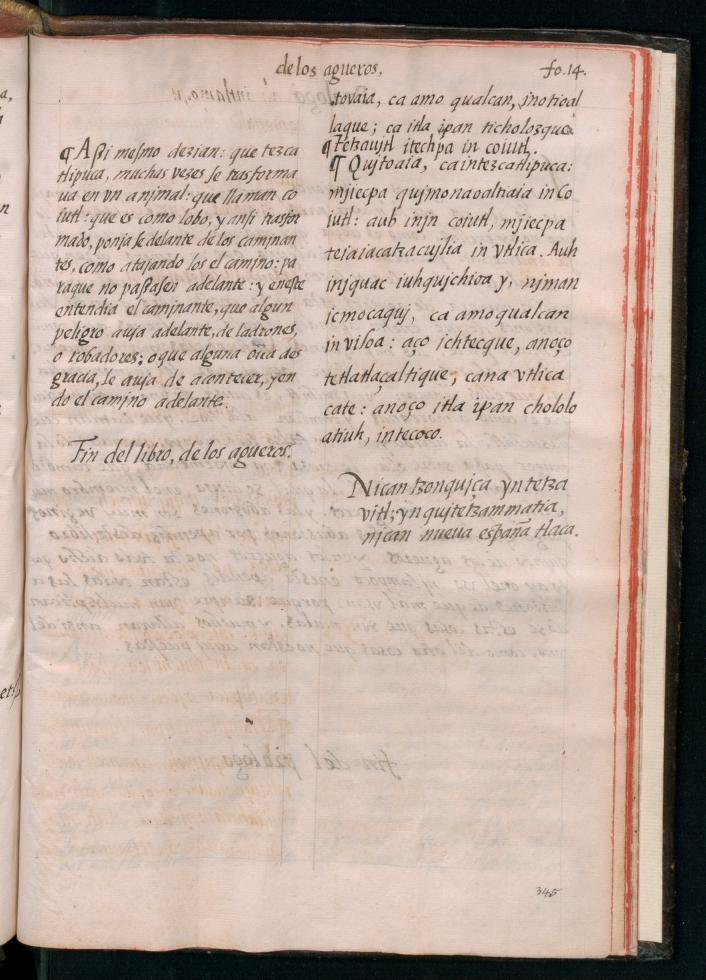 de los agueros,
fo. 14.
¶ Assi mesmo dezian: que tezca
tlipuca, muchas vezes se trasforma
ua en vn animal: que llaman co
iutl: que es como lobo, y ansi trasfor
mado, ponjase delante de los caminan
tes, como atajando los el camino: pa
raque no passasen adelante: y eneste
entendia el caminante, que algun
peligro auja adelante, de ladrones,
o robadores; o que alguna otra des
gracia, le auja de acontecer, yen
do el camino adelante.
Fin del libro, de los agueros.
tovaia, ca amo qualcan, inotioal
laque; ca itla ipan ticholozque.
¶ Tetzauitl itechpa in coiutl.
¶ Quitoaia, ca in tezcatlipuca:
mjiecpa qujmonaoaltiaia in co
iutl: auh injn coiutl, mjiecpa
teiaiacatzacujlia in vtlica. Auh
injquac iuhqujchioa y, njman
icmocaquj, ca amo qualcan
in viloa: aço ichtecque, anoço
tetlatlaçaltique, cana vtlica
cate: anoço itla ipan chololo
atiuh, intecoco.
Nican tzonquiça yn tetza
vitl; yn quitetzammatia,
nican nueua españa tlaca.
345